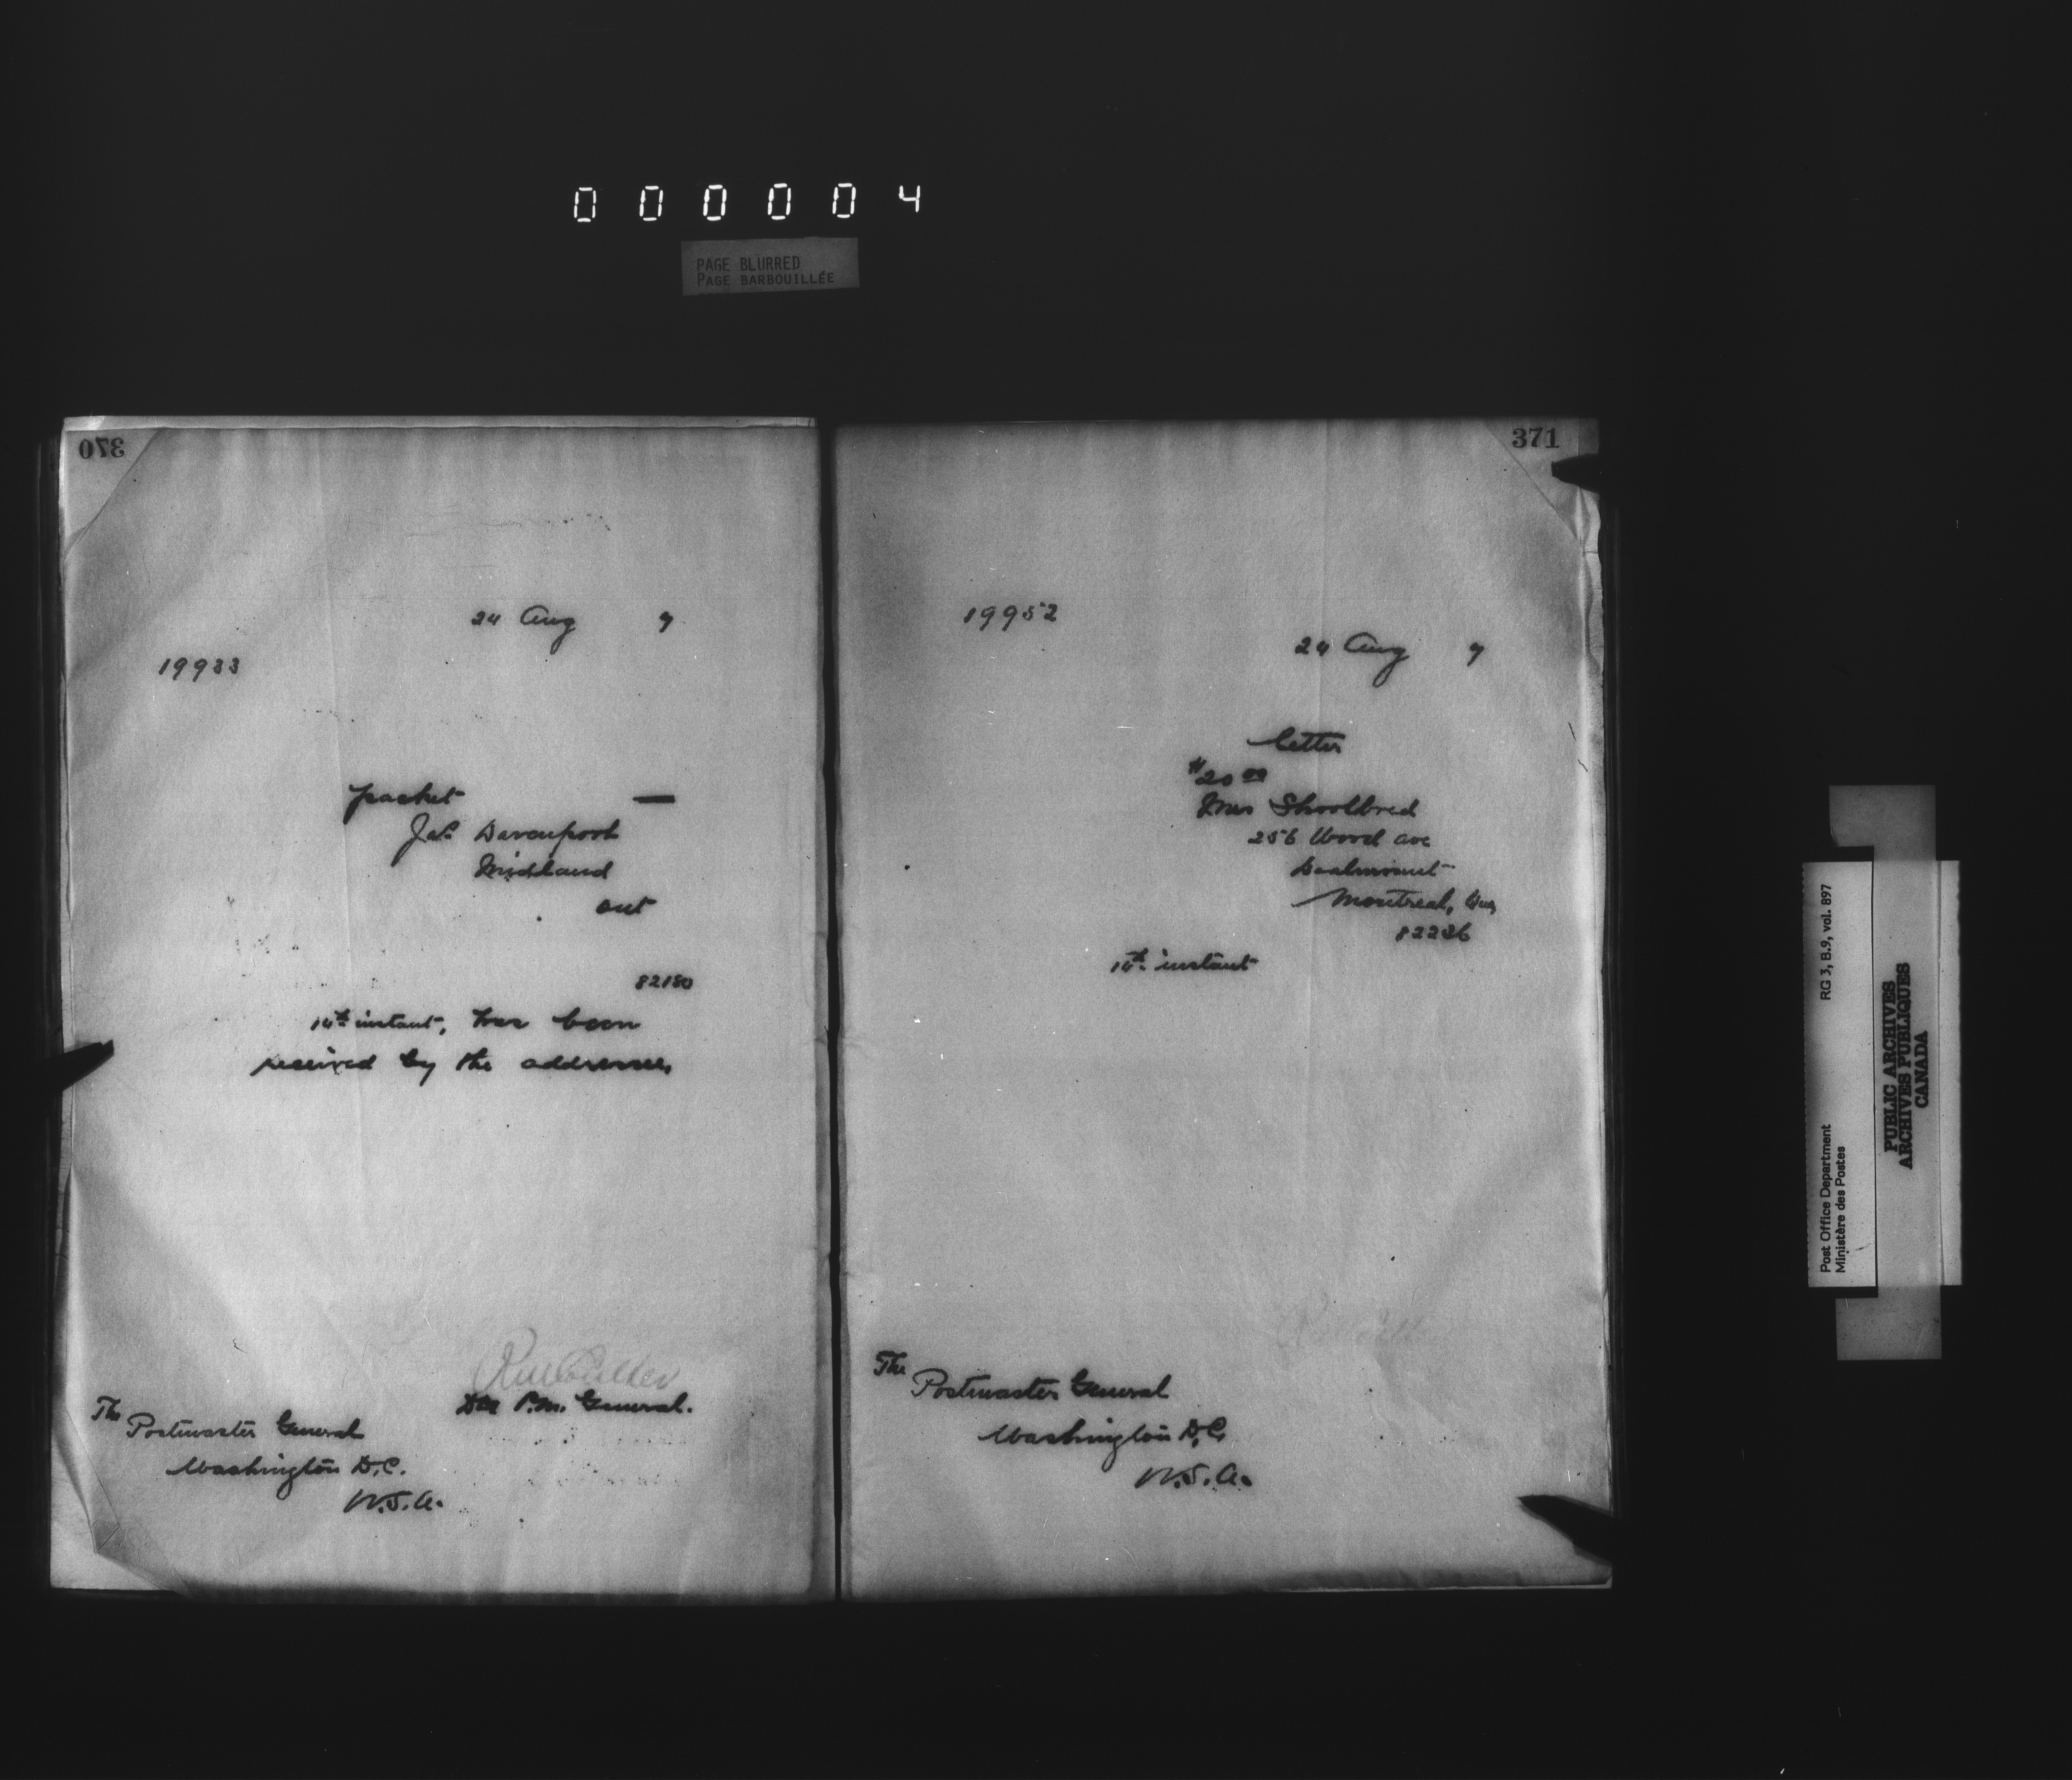 0 0 0 0 0 4
PAGE BLURRED
PAGE BARBOUILLÉE
370
24 Aug 7
19933
packet —
Jas. Davenport
Midland
Ont
82180
14th instant, has been
received by the addressee,
Dep P.M. General.
The
Postmaster General
Washington D.C.
U.S.A.
371
19952
24 Aug 7
letter
$20 00
Mrs Shoolbred
256 Wood ave
Montreal, Que
82236
14th instant
The
Postmaster General
Washington D.C.
U.S.A.
Post Office Department RG 3, B.9, vol. 897
Ministère des Postes
PUBLIC ARCHIVES
ARCHIVES PUBLIQUES
CANADA